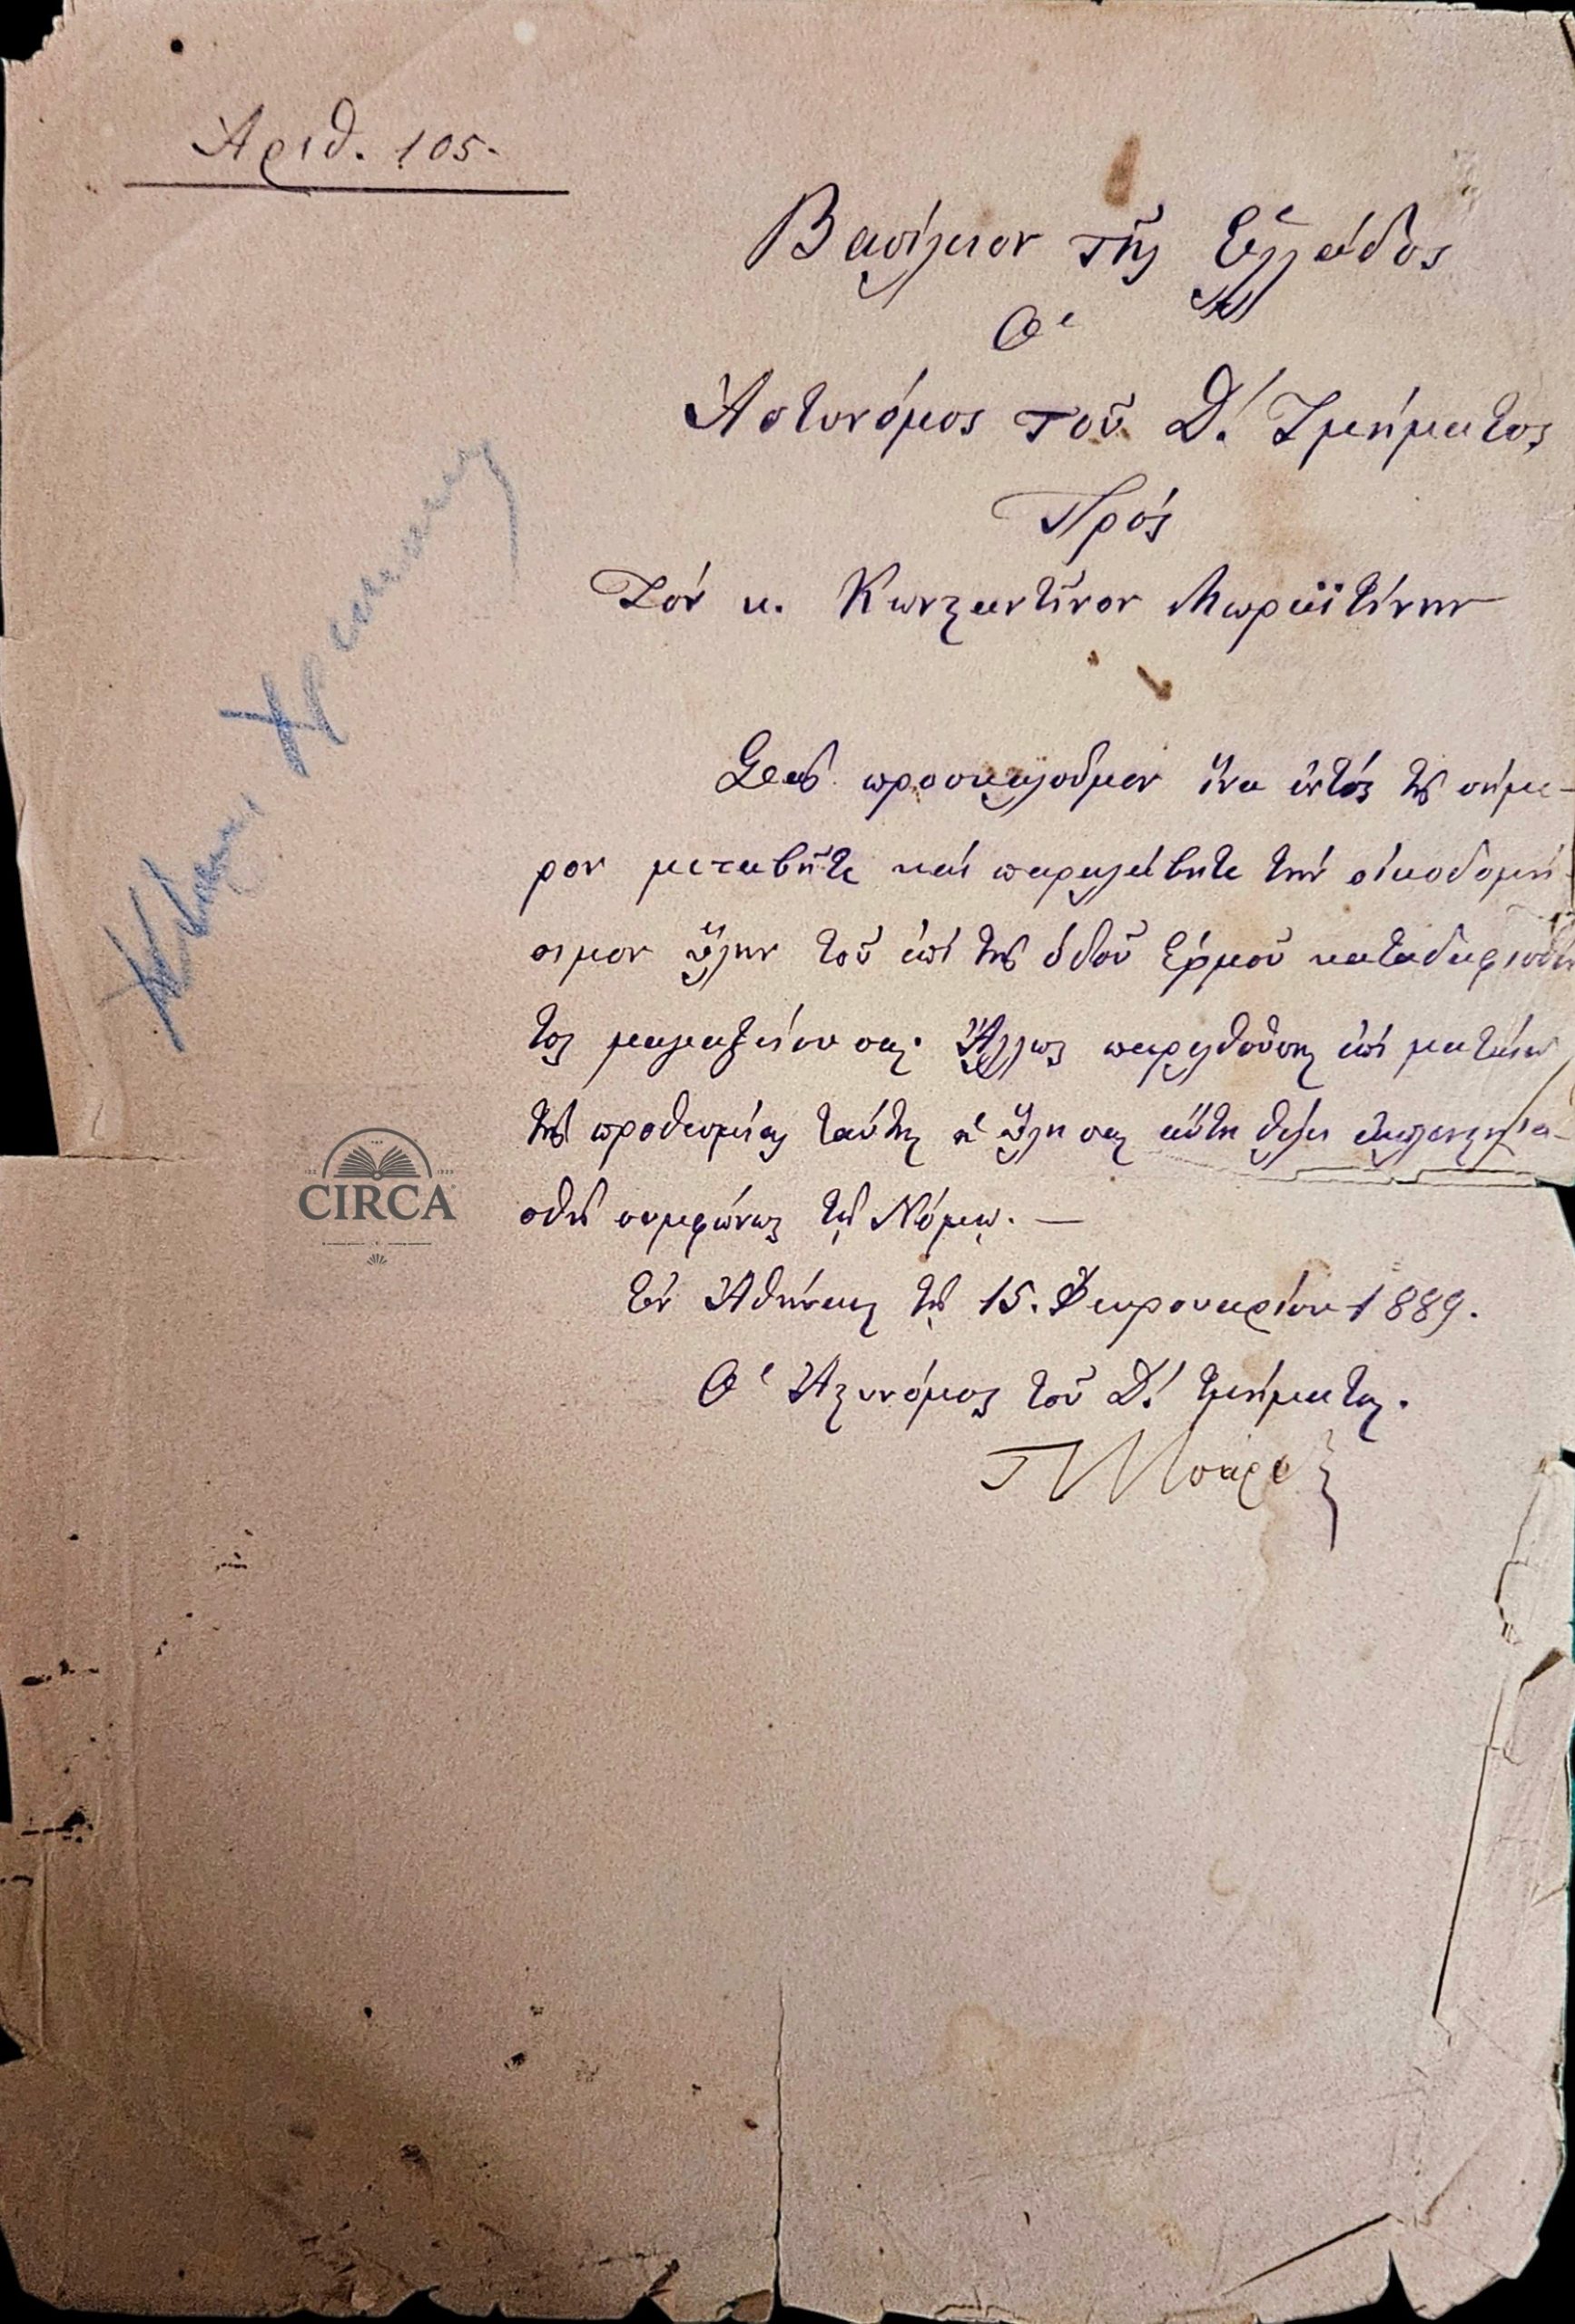 Ἀριθ. 105.
Βασίλειον τῆς Ἑλλάδος
Ὁ
Ἀστυνόμος τοῦ Δ! Τμήματος
Πρὸς
Τὸν κ. Κωνσταντῖνον Μωραϊτίνην
Σᾶς προσκαλοῦμεν ἵνα ἐντὸς τῆς σήμε-
ρον μεταβῆτε καὶ παραλάβητε τὴν οἰκοδομή-
σιμον ὕλην τοῦ ἐπὶ τῆς ὁδοῦ Ἑρμοῦ κατεδαφισθέν
τος μαγαζείου σας. Ἄλλως παρελθούσης ἐπὶ ματαίῳ
τῆς προθεσμίας ταύτης ἡ ὕλη σας αὕτη θέλει
σθῆ συμφώνως τῷ Νόμῳ. —
Ἐν Ἀθήναις τῇ 15. Φευρουαρίου 1889.
Ὁ Ἀστυνόμος τοῦ Δ! τμήματος.
CIRCA